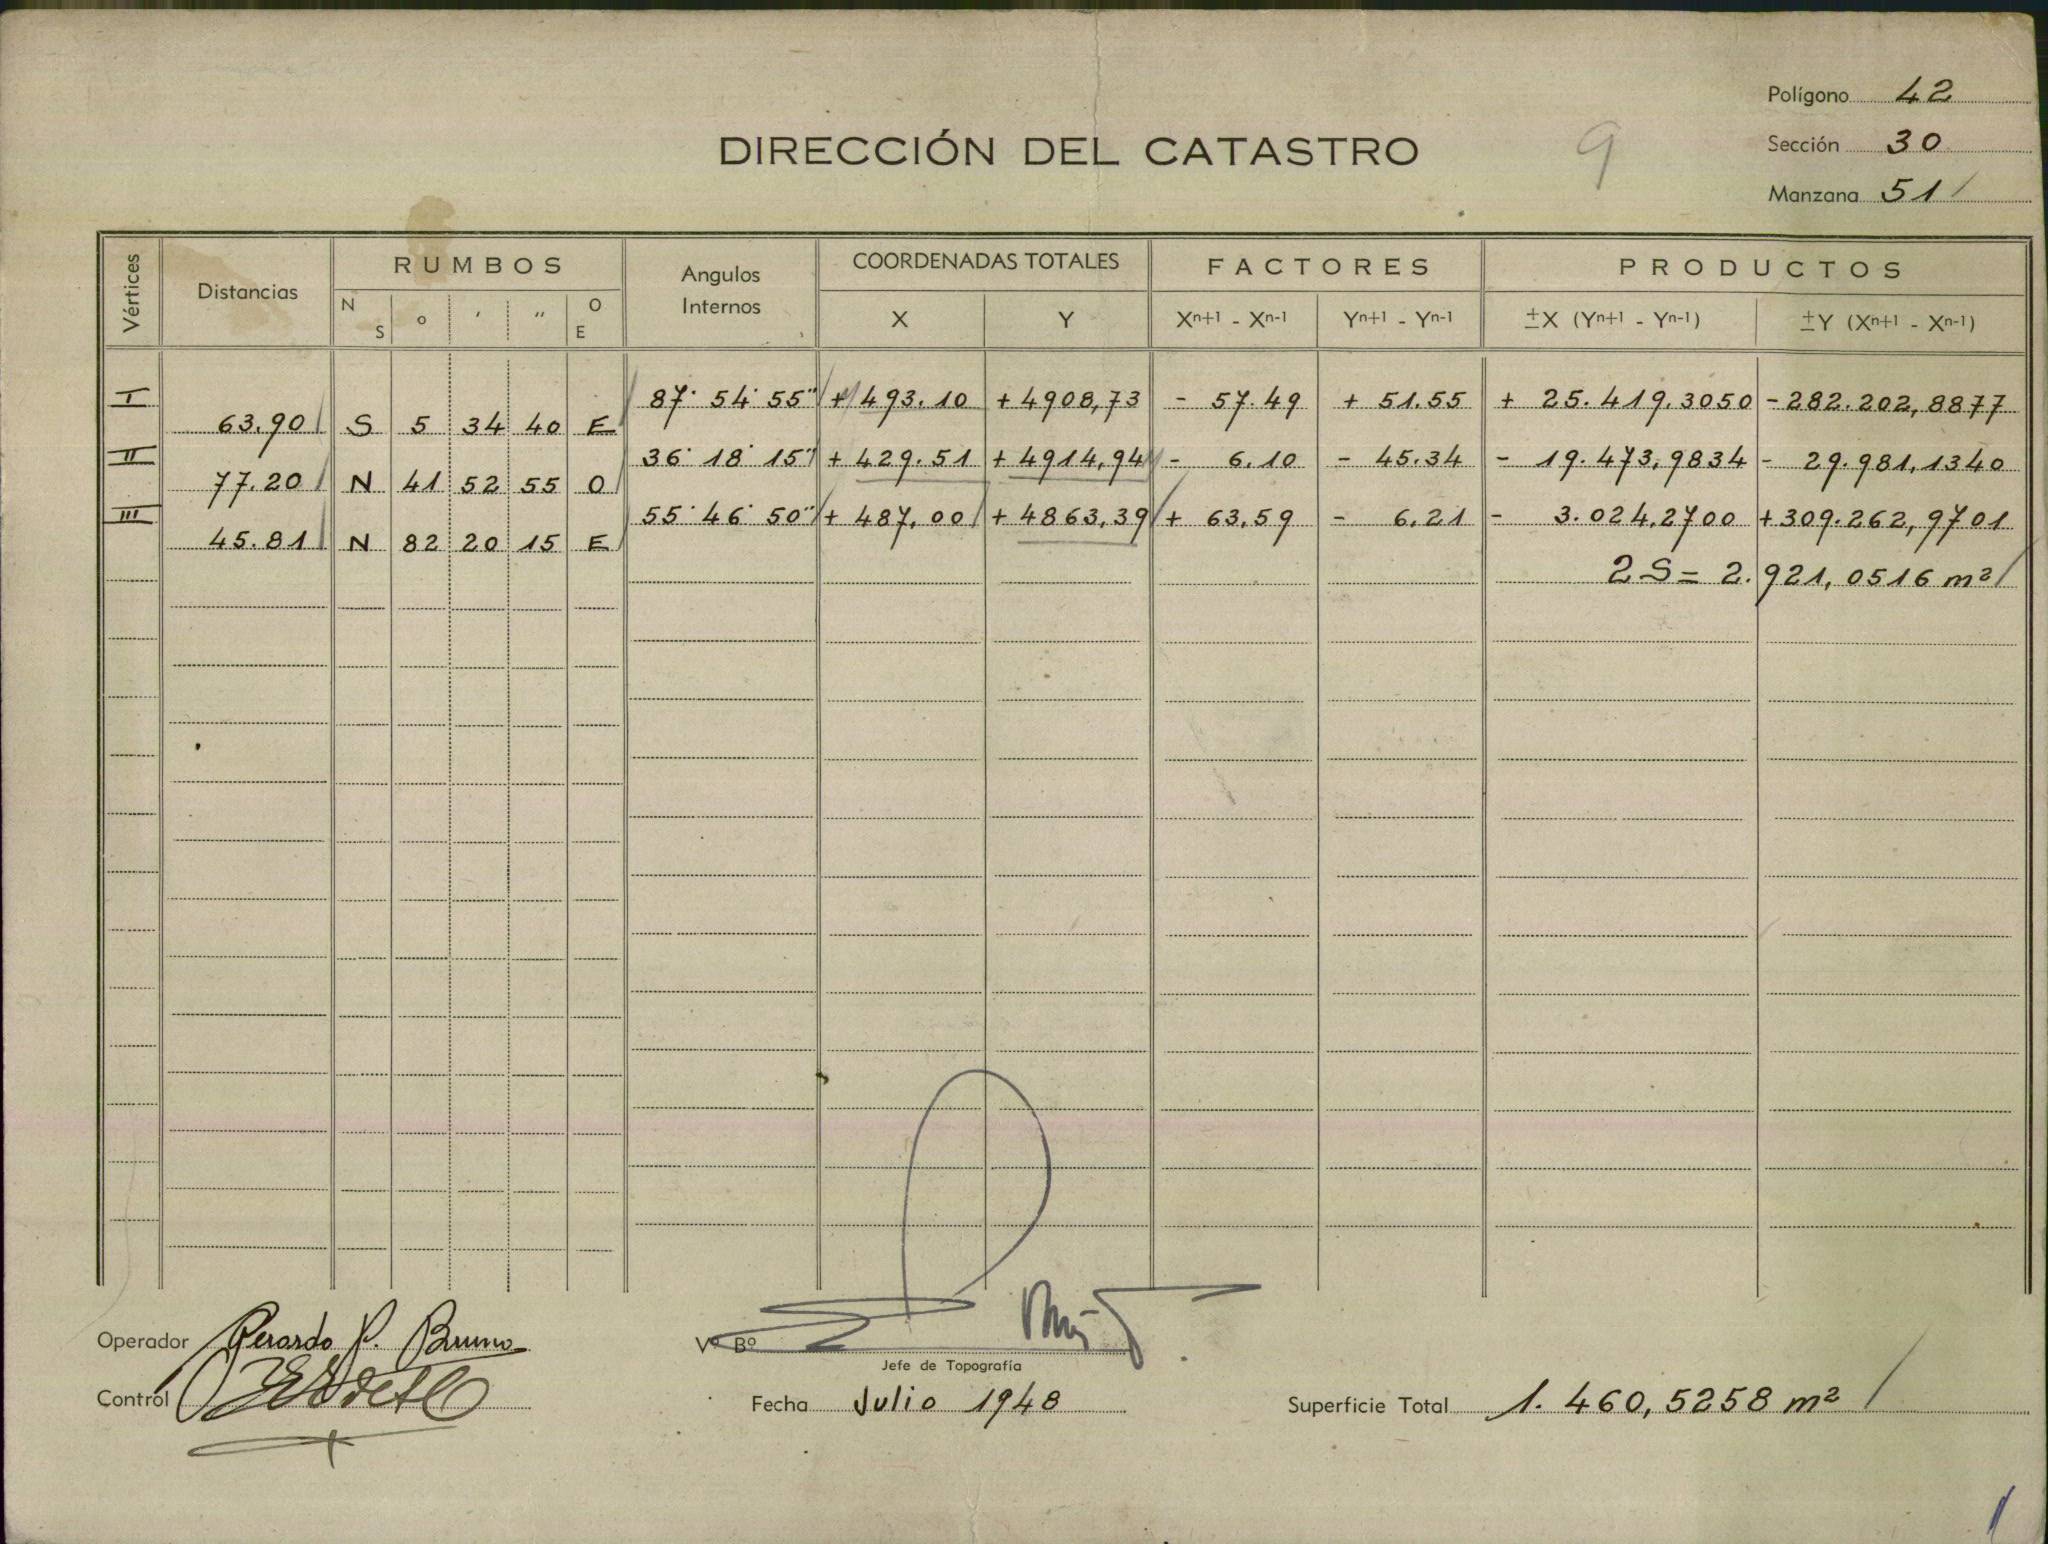 Polígono 42
DIRECCIÓN DEL CATASTRO 9
Sección 30
Manzana 51
Vértices Distancias RUMBOS Angulos Internos COORDENADAS TOTALES FACTORES PRODUCTOS
N S ° ′ ″ O E X Y Xⁿ⁺¹ - Xⁿ⁻¹ Yⁿ⁺¹ - Yⁿ⁻¹ ±X (Yⁿ⁺¹ - Yⁿ⁻¹) ±Y (Xⁿ⁺¹ - Xⁿ⁻¹)
I 87° 54' 55" + 493.10 + 4908,73 - 57.49 + 51.55 + 25.419.3050 - 282.202,8877
63.90 S 5 34 40 E
II 36° 18' 15" + 429.51 + 4914,94 - 6.10 - 45.34 - 19.473,9834 - 29.981,1340
77.20 N 41 52 55 O
III 55° 46' 50" + 487,00 + 4863,39 + 63,59 - 6,21 - 3.024,2700 + 309.262,9701
45.81 N 82 20 15 E
2S = 2.921,0516 m²
Operador Gerardo P. Bruno
Vº Bº
Jefe de Topografía
Control
Fecha Julio 1948
Superficie Total 1.460,5258 m²